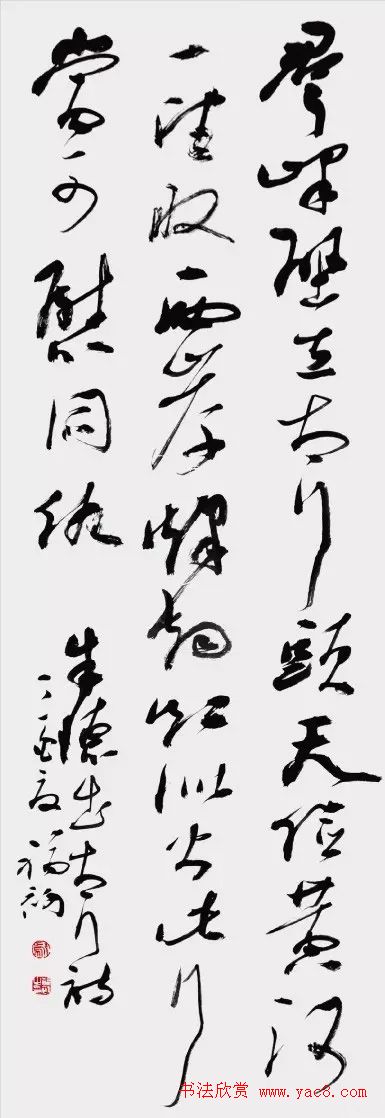 羣峰壁立太行頭天險黃河
一望收兩岸烽煙紅似火此行
當可慰同仇
朱德出太行詩
丁酉夏
书法欣赏 www.yac8.com